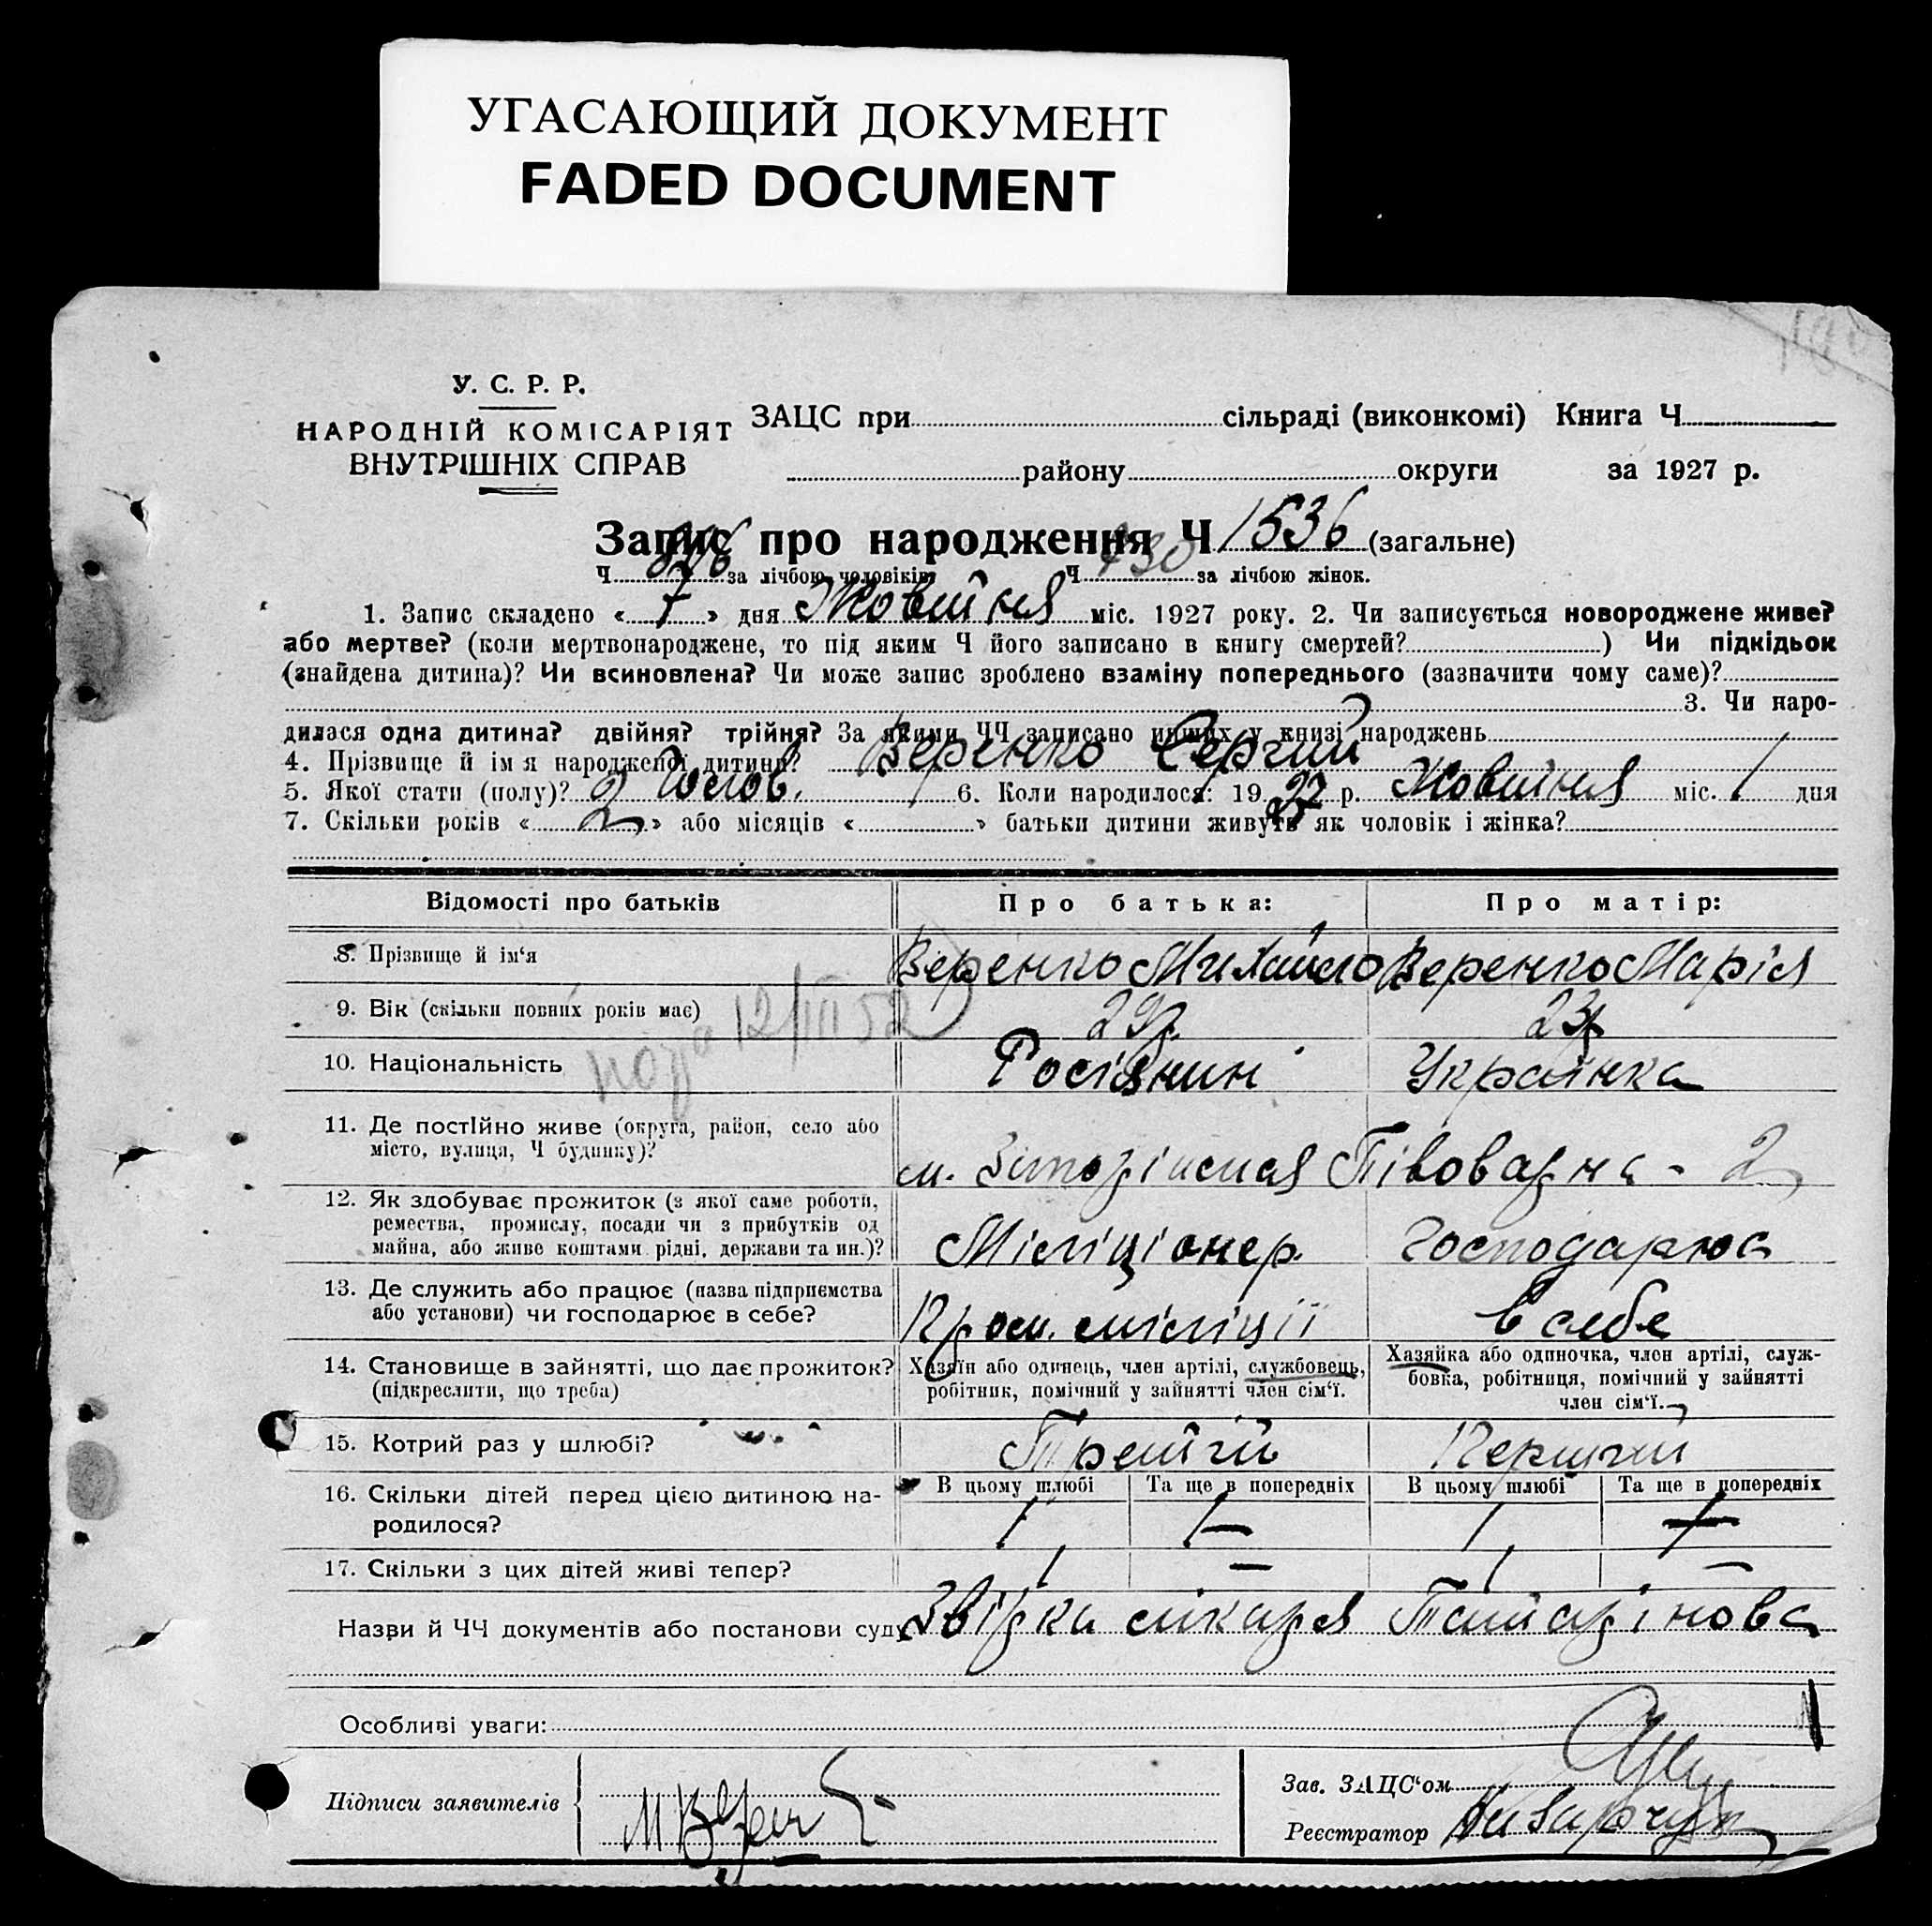 УГАСАЮЩИЙ ДОКУМЕНТ
FADED DOCUMENT
У. С. Р. Р.
НАРОДНІЙ КОМІСАРІЯТ
ВНУТРІШНІХ СПРАВ
ЗАЦС при сільраді (виконкомі) Книга Ч
району округи за 1927 р.
Запис про народження Ч 1536 (загальне)
Ч 806 за лічбою чоловіків Ч 730 за лічбою жінок.
1. Запис складено « 7 » дня Жовтня міс. 1927 року. 2. Чи записується новороджене живе?
або мертве? (коли мертвонароджене, то під яким Ч його записано в книгу смертей? ) Чи підкідьок
(знайдена дитина)? Чи всиновлена? Чи може запис зроблено взаміну попереднього (зазначити чому саме)?
3. Чи наро-
дилася одна дитина? двійня? трійня? За якими ЧЧ записано инших у книзі народжень
4. Прізвище й ім'я народженої дитини? Веренко Сергий
5. Якої стати (полу)? Чолов. 6. Коли народилося: 1927 р. Жовтня міс. 1 дня
7. Скільки років « 2 » або місяців « » батьки дитини живуть як чоловік і жінка?
Відомості про батьків Про батька: Про матір:
8. Прізвище й ім'я Веренко Михайло Веренко Марія
9. Вік (скільки повних років має) 29р. 23р
12/III 52
10. Національність Росіянин Українка
11. Де постійно живе (округа, район, село або
місто, вулиця, Ч будинку)? м. Півоварна - 2
12. Як здобуває прожиток (з якої саме роботи,
ремества, промислу, посади чи з прибутків од
майна, або живе коштами рідні, держави та ин.)? Міліціонер. Господарює
13. Де служить або працює (назва підприємства
або установи) чи господарює в себе? Пром. міліції в себе
14. Становище в зайнятті, що дає прожиток?
(підкреслити, що треба)
Хазяїн або одинець, член артілі, службовець,
робітник, помічний у зайнятті член сім'ї.
Хазяйка або одиночка, член артілі, служ-
бовка, робітниця, помічний у зайнятті
член сім'ї.
15. Котрий раз у шлюбі? Третій Перший
16. Скільки дітей перед цією дитиною на-
родилося?
В цьому шлюбі Та ще в попередніх В цьому шлюбі Та ще в попередніх
1 1 1
17. Скільки з цих дітей живі тепер? 1 — 1 —
Назви й ЧЧ документів або постанови суду Звірка лікаря Татарінова
Особливі уваги:
Підписи заявителів
Зав. ЗАЦС'ом
Реєстратор